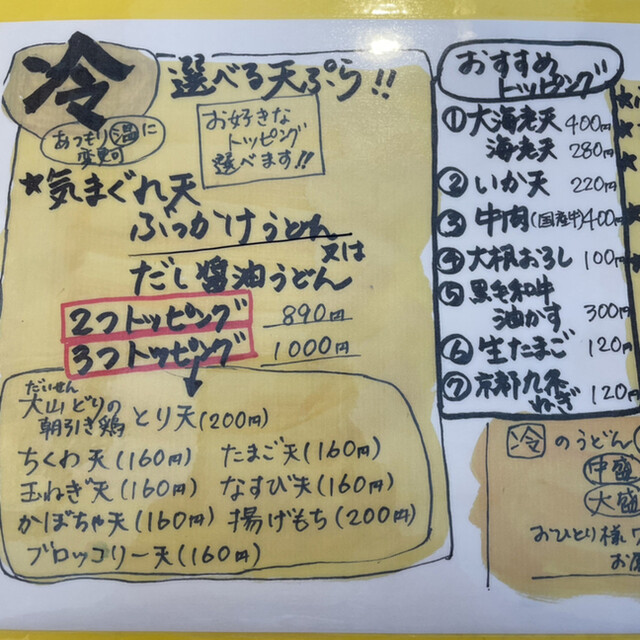 冷
選べる天ぷら!!
あつもり温に
変更可
お好きな
トッピング
選べます!!
★気まぐれ天
ぶっかけうどん
又は
だし醤油うどん
2つトッピング 890円
3つトッピング 1000円
だいせん
大山どりの
朝引き鶏 とり天(200円)
ちくわ天(160円) たまご天(160円)
玉ねぎ天(160円) なすび天(160円)
かぼちゃ天(160円) 揚げもち(200円)
ブロッコリー天(160円)
おすすめ
トッピング
① 大海老天 400円
海老天 280円
② いか天 220円
③ 牛肉(国産牛)400円
④ 大根おろし 100円
⑤ 黒毛和牛
油かす 300円
⑥ 生たまご 120円
⑦ 京都九条
ねぎ 120円
冷のうどん
中盛
大盛
おひとり様
お